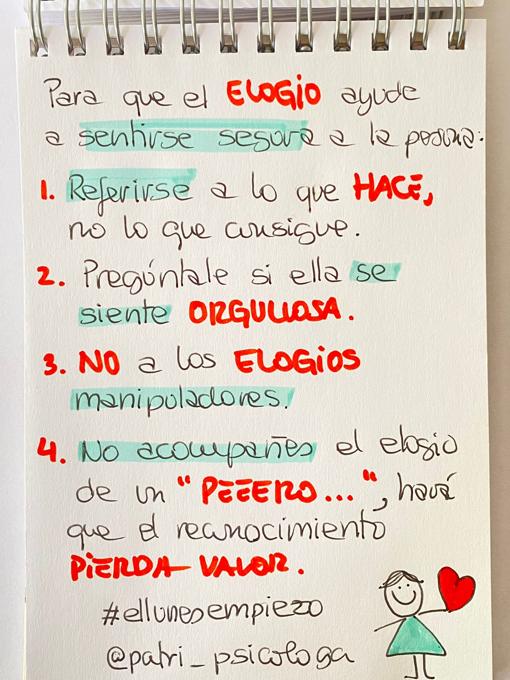 Para que el ELOGIO ayude
a sentirse segura a la persona:
1. Referirse a lo que HACE,
no lo que consigue.
2. Pregúntale si ella se
siente ORGULLOSA.
3. NO a los ELOGIOS
manipuladores.
4. No acompañes el elogio
de un "PEEERO...", hará
que el reconocimiento
PIERDA VALOR.
#ellunesempiezo
@patri_psicologa